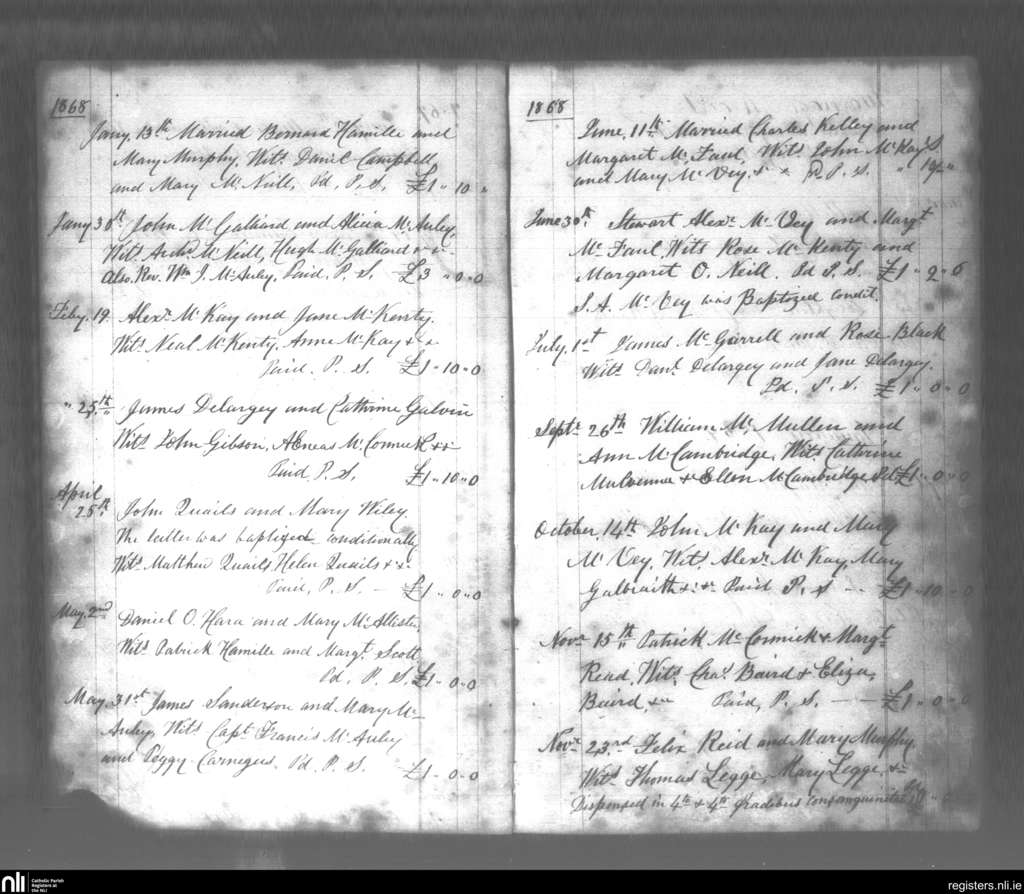 1868
Jany. 13th Married Bernard Hamille and
Mary Murphy, Wits. Daniel Campbell,
and Mary McNeill, Pd, P. S. £1 " 10 "
Jany 30th John McGalliard and Alicia McAuley.
Wits Archd. McNeill, Hugh McGalliard &c.
Also, Rev. Wm J. McAuley, Paid, P. S. £3 " 0 " 0
Feby. 19. Alexr. McKay and Jane McKenty.
Wits Neal McKenty, Anne McKay &c
Paid, P. S. £1 " 10 " 0
" 25th James Delargey and Cathrine Galvin
Wits John Gibson, AEneas McCormick &c
Paid P. S. £1 " 10 " 0
April
25th John Quails and Mary Wiley
The latter was baptized conditionally
Wits Matthew Quails, Helen Quails &c
Paid, P. S. £1 " 0 " 0
May, 2nd Daniel O. Hara and Mary McAllister,
Wits Patrick Hamille and Margt. Scott
Pd, P. S. £1 " 0 " 0
May, 31st James Sanderson and Mary Mc
Auley, Wits Capt. Francis McAuley
and Peggy Carnegus. Pd. P. S. £1 " 0 " 0
1868
June, 11th Married Charles Kelley and
Margaret McFaul, Wits John McKay
and Mary McVey, &c P. S.
June 30th. Stewart Alexr. McVey and Margt
McFaul, Wits Rose McKenty and
Margaret O. Neill. Pd P. S. £1 " 2 " 6
S. A. McVey was Baptized condit.
July, 1st James McGarrell and Rose Black
Wits Danl. Delargey and Jane Delargey.
Pd. P. S. £1 " 0 " 0
Septr 26th William McMullen and
Ann McCambridge, Wits Cathrine
Mulvenna & Ellen McCambridge Pd £1 " 0 " 0
October, 14th John McKay and Mary
McVey, Wits, Alexr. McKay, Mary
Galbraith &c Paid P. S £1 " 10 " 0
Novr 15th Patrick McCormick & Margt
Read, Wits, Chas. Baird & Eliza,
Baird, &c Paid, P. S. £1 " 0 " 0
Novr 23rd Felix Reid and Mary Murphy.
Wits Thomas Legge, Mary Legge, &c
Dispensed in 4th & 4th gradibus consanguinitatis
nli
Catholic Parish
Registers at
the NLI
registers.nli.ie